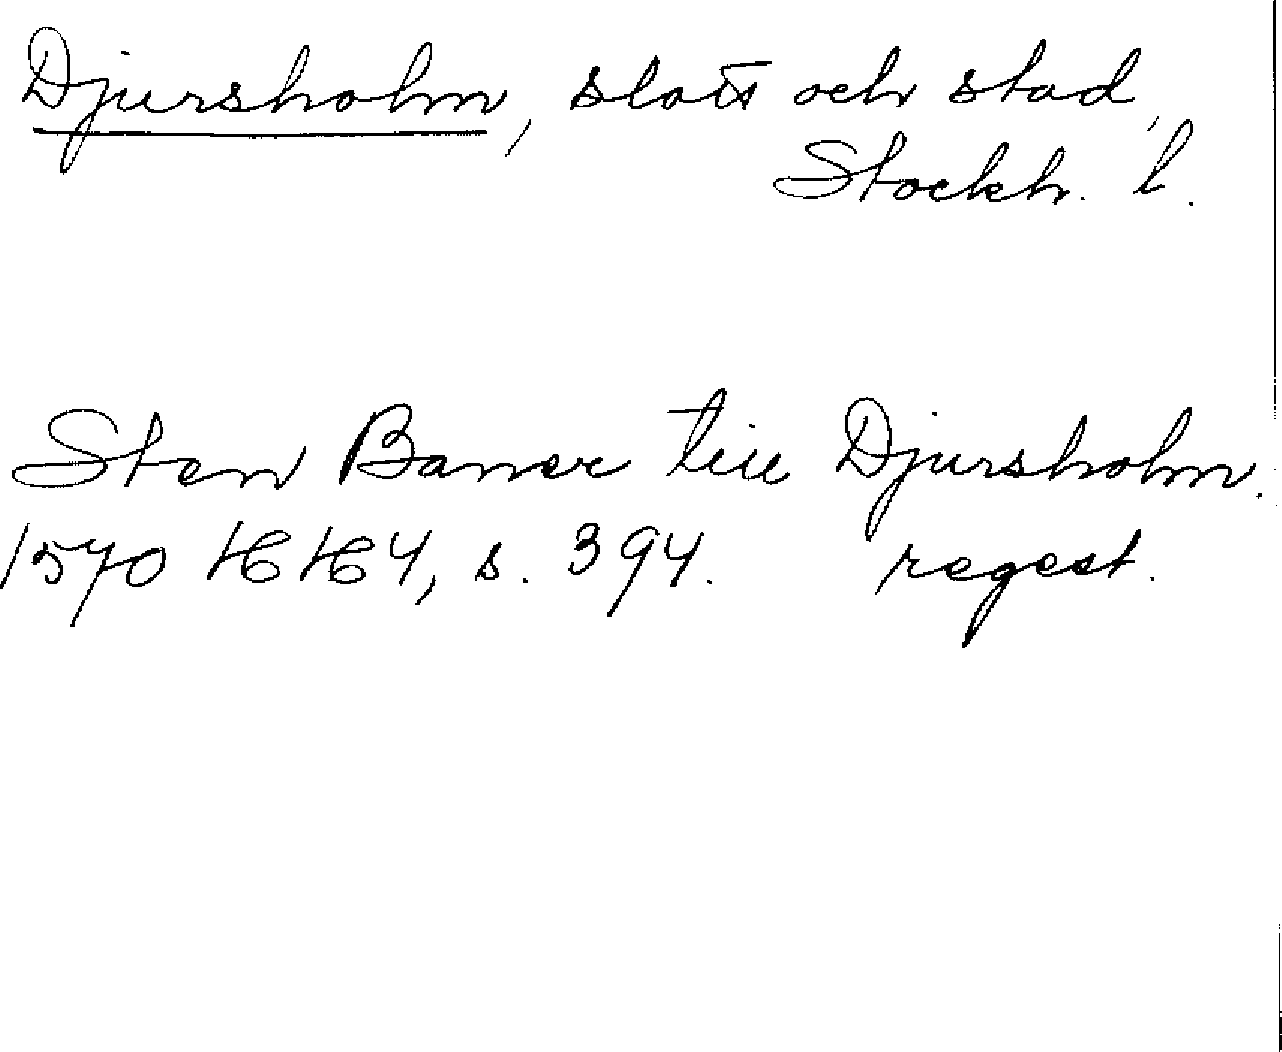 Djursholm, slott och stad,
Stockh. l.
Sten Baner till Djursholm.
1570 HH 4, s. 394. regest.